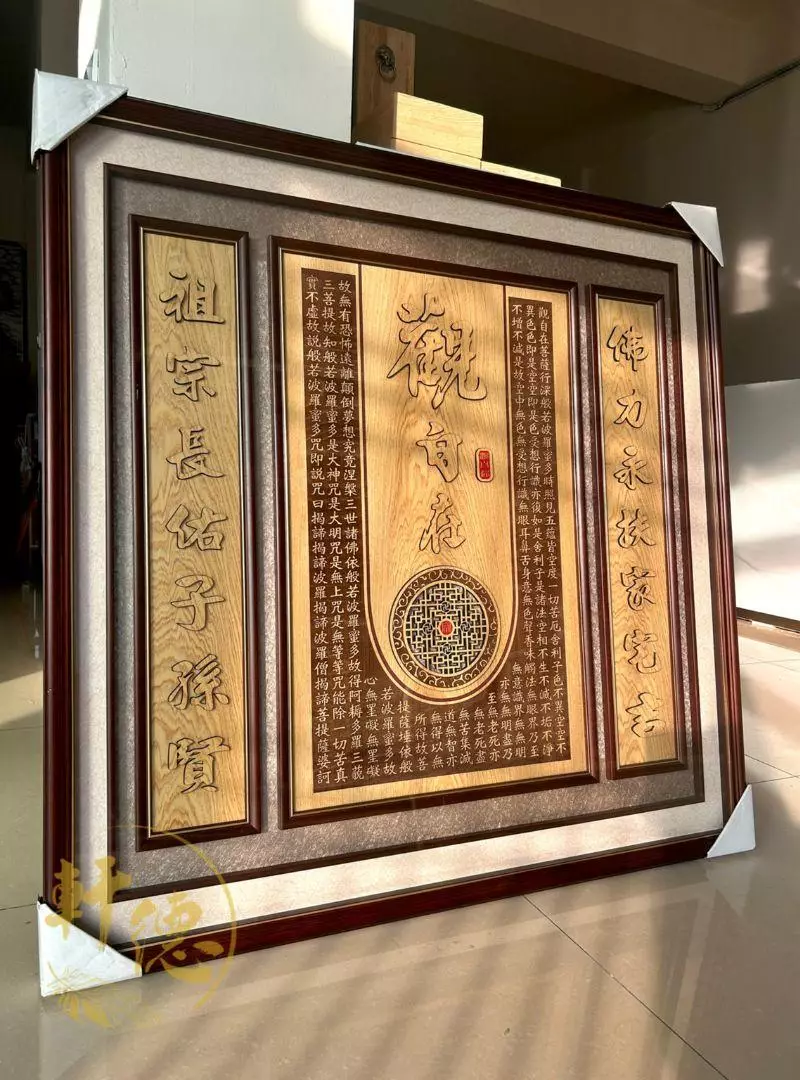 佛力永扶家宅吉
觀自在
觀自在菩薩行深般若波羅蜜多時照見五蘊皆空度一切苦厄舍利子色不異空空不
異色色即是空空即是色受想行識亦復如是舍利子是諸法空相不生不滅不垢不淨
不增不減是故空中無色無受想行識無眼耳鼻舌身意無色聲香味觸法無眼界乃至
無意識界無無明
亦無無明盡乃
至無老死亦
無老死盡
無苦集滅
道無智亦
無得以無
所得故菩
提薩埵依般
若波羅蜜多故
心無罣礙無罣礙
故無有恐怖遠離顛倒夢想究竟涅槃三世諸佛依般若波羅蜜多故得阿耨多羅三藐
三菩提故知般若波羅蜜多是大神咒是大明咒是無上咒是無等等咒能除一切苦真
實不虛故說般若波羅蜜多咒即說咒曰揭諦揭諦波羅揭諦波羅僧揭諦菩提薩婆訶
祖宗長佑子孫賢
軒德